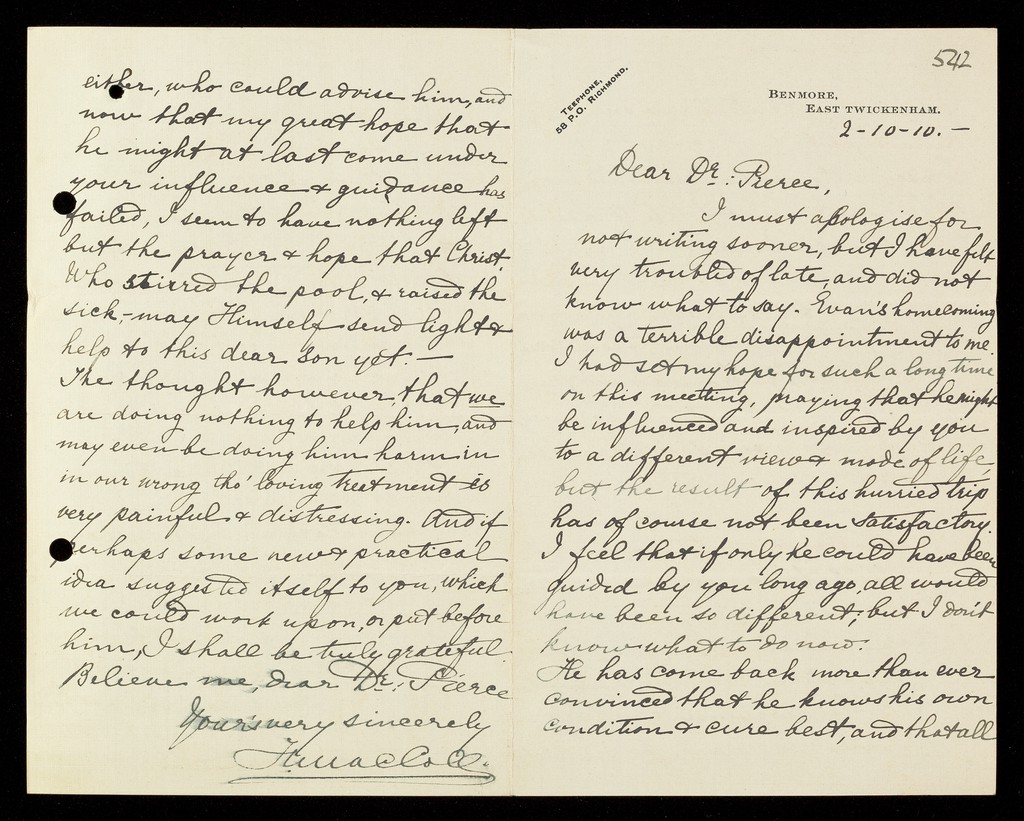 542
TEEPHONE,
58 P.O. RICHMOND.
BENMORE,
EAST TWICKENHAM.
2-10-10. -
Dear Dr.: Pierce,
I must apologise for
not writing sooner, but I have felt
very troubled of late, and did not
know what to say. Evan's homecoming
was a terrible disappointment to me.
I had set my hope for such a long time
on this meeting, praying that he might
be influenced and inspired by you
to a different view & mode of life,
but the result of this hurried trip
has of course not been satisfactory.
I feel that if only he could have been
guided by you long ago, all would
have been so different; but I don't
know what to do now.
He has come back more than ever
convinced that he knows his own
condition & cure best, and that all
either, who could advise him, and
now that my great hope that
he might at last come under
your influence & guidance has
failed, I seem to have nothing left
but the prayer & hope that Christ,
Who stirred the pool, & raised the
sick, - may Himself send light &
help to this dear son yet. -
The thought however, that we
are doing nothing to help him, and
may even be doing him harm in
in our wrong tho' loving treatment is
very painful & distressing. And if
perhaps some new & practical
idea suggested itself to you, which
we could work upon, or put before
him, I shall be truly grateful.
Believe me, dear Dr.: Pierce
Yours very sincerely